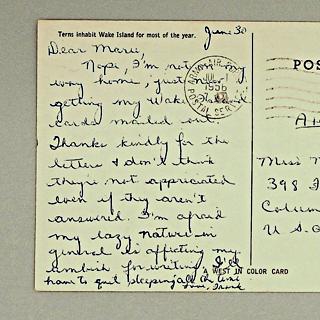 Terns inhabit Wake Island for most of the year.
June 30
Dear Marie,
Nope, I'm not on my
way home, just now
getting my Wake Island
cards mailed out.
Thanks kindly for the
letters & don't think
they're not appreciated
even if they aren't
answered. I'm afraid
my lazy nature in
general is affecting my
ambish for writing. I'll
have to quit sleeping all the time
Love, Frank
A WEST IN COLOR CARD
JUL 1
1956
POSTAL SER
POS
Ai
Miss M
398
Colum
U S